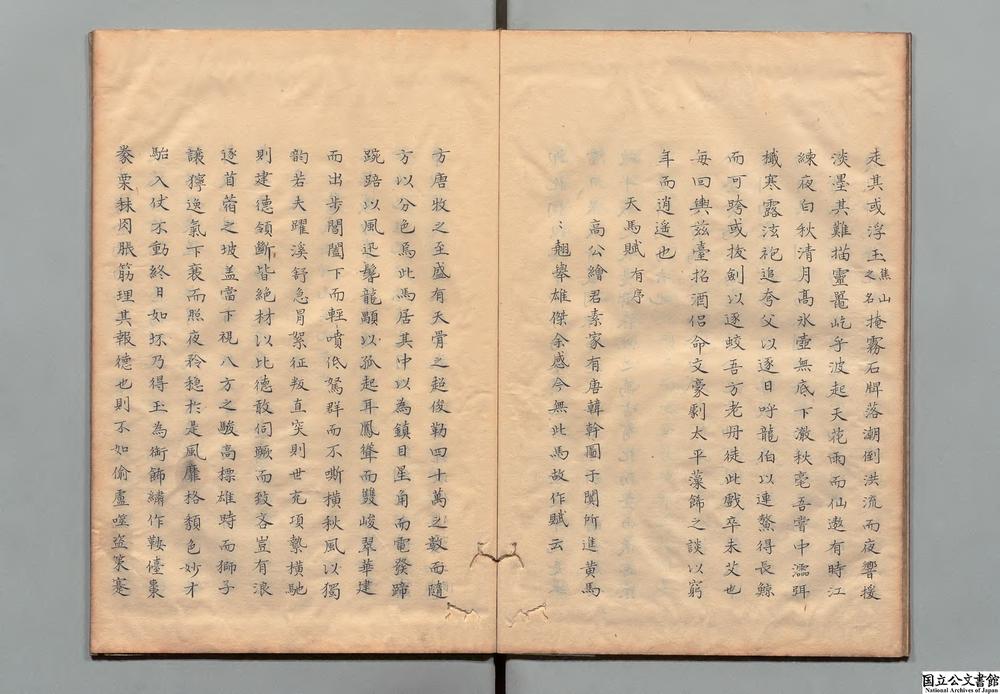 走其或浮玉焦山之名掩霧石牌落潮倒洪流而夜響援
淡墨其難描靈鼉屹乎波起天花雨而仙遨有時江
練夜白秋清月高氷壺無底下澈秋毫吾嘗中濡弭
檝寒露泫袍追夸父以逐日呼龍伯以連鰲得長鯨
而可跨或拔劍以逐蛟吾方老丹徒此戲卒未艾也
每回輿兹臺招酒侶命文豪劇太平藻飾之談以窮
年而逍遙也
天馬賦有序
高公繪君素家有唐韓幹圖于闐所進黃馬
翹舉雄傑余感今無此馬故作賦云
方唐牧之至盛有天骨之超俊勒四十萬之數而隨
方以分色焉此馬居其中以為鎮目星角而電發蹄
踠踣以風迅鬐龍顒以孤起耳鳳聳而雙峻翠華建
而出步閶闔下而輕噴低駑群而不嘶橫秋風以獨
韵若夫躍溪舒急冐絮征叛直突則世充項縶橫馳
則建德領斷皆絶材以比德敢伺蹶而致吝豈有浪
逐苜蓿之坡盖當下視八方之駿高標雄時而獅子
讓獰逸氣下衰而照夜矜穏於是風靡格頽色妙才
駘入仗不動終日如坯乃得玉為銜飾繡作鞍儓棗
豢粟秣肉脹筋埋其報德也則不如偷盧噬盜策蹇
国立公文書館
National Archives of Japan